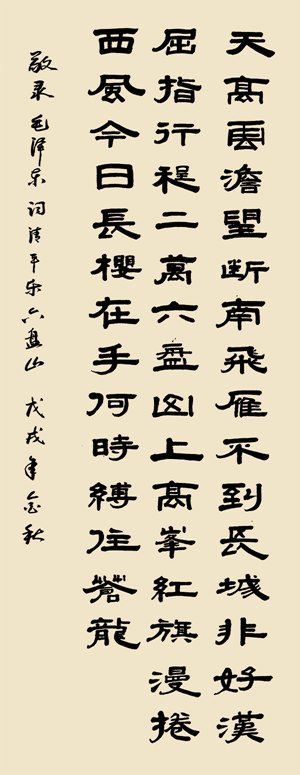 天髙雲澹望断南飛雁不到長城非好漢
屈指行程二萬六盘山上髙峯紅旗漫捲
西風今日長櫻在手何時縛住蒼龍
敬录毛泽东词清平乐六盘山 戊戌年金秋